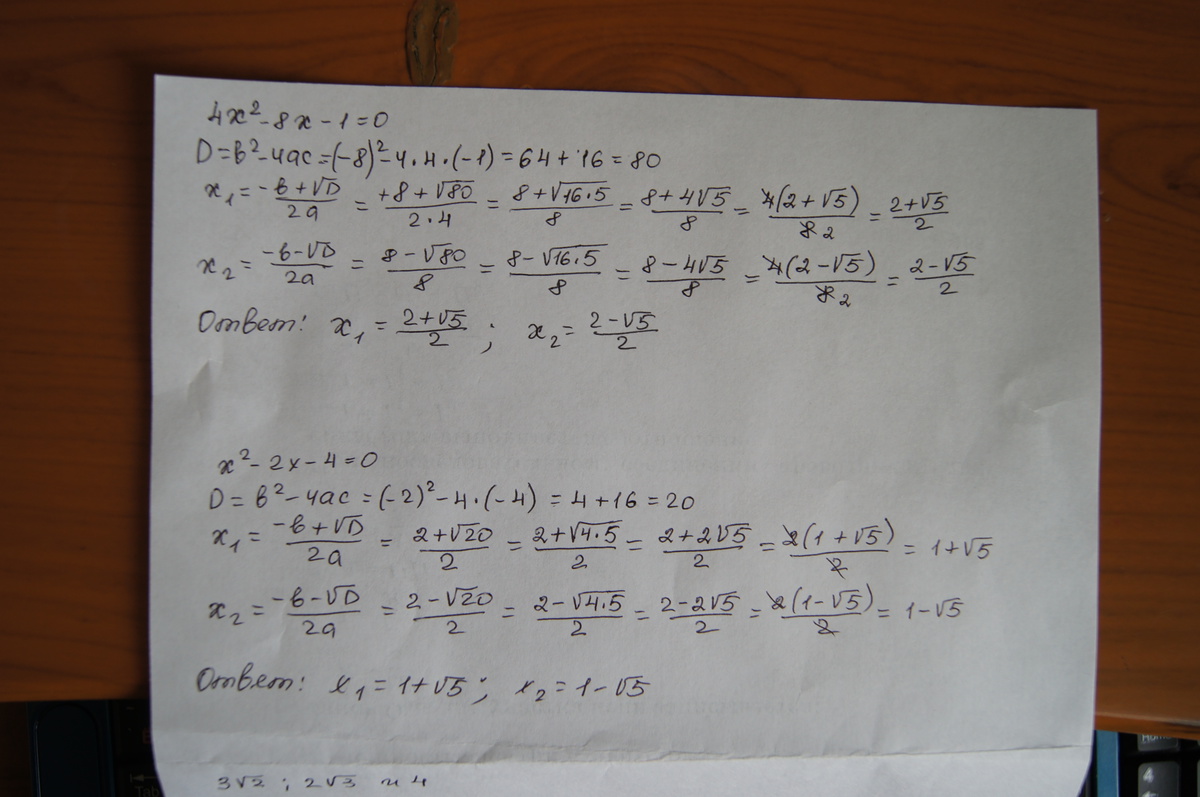 4x² - 8x - 1 = 0
D = b² - 4ac = (-8)² - 4·4·(-1) = 64 + 16 = 80
x₁ = (-b + √D)/(2a) = (+8 + √80)/(2·4) = (8 + √(16·5))/8 = (8 + 4√5)/8 = 4(2 + √5)/8 2 = (2 + √5)/2
x₂ = (-b - √D)/(2a) = (8 - √80)/8 = (8 - √(16·5))/8 = (8 - 4√5)/8 = 4(2 - √5)/8 2 = (2 - √5)/2
Ответ: x₁ = (2 + √5)/2 ; x₂ = (2 - √5)/2
x² - 2x - 4 = 0
D = b² - 4ac = (-2)² - 4·(-4) = 4 + 16 = 20
x₁ = (-b + √D)/(2a) = (2 + √20)/2 = (2 + √(4·5))/2 = (2 + 2√5)/2 = 2(1 + √5)/2 = 1 + √5
x₂ = (-b - √D)/(2a) = (2 - √20)/2 = (2 - √(4·5))/2 = (2 - 2√5)/2 = 2(1 - √5)/2 = 1 - √5
Ответ: x₁ = 1 + √5 ; x₂ = 1 - √5
3√2 ; 2√3 и 4
Tab
Home
4